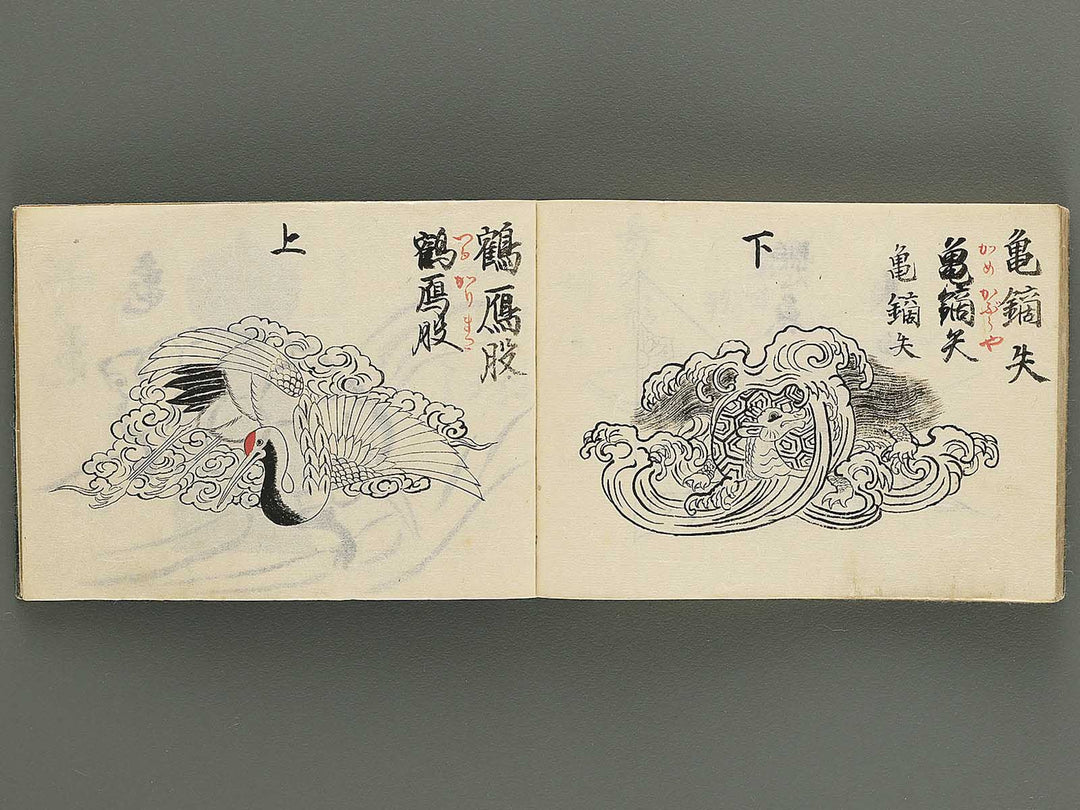 亀鏑失
かめ かぶらや
亀鏑矢
亀鏑失
下
鶴鴈股
つる かりまた
鶴鴈股
上